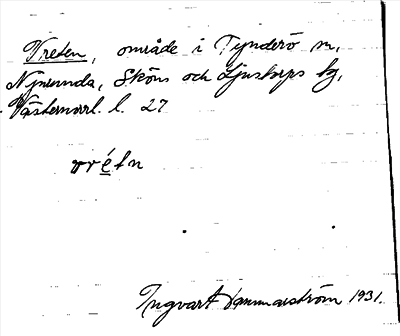 Vreten, område i Tynderö m.
Njurunda, Sköns och Ljustorps tg,
Västernorrl. l. 27
vrétn
Ingvart Hammarström 1931.